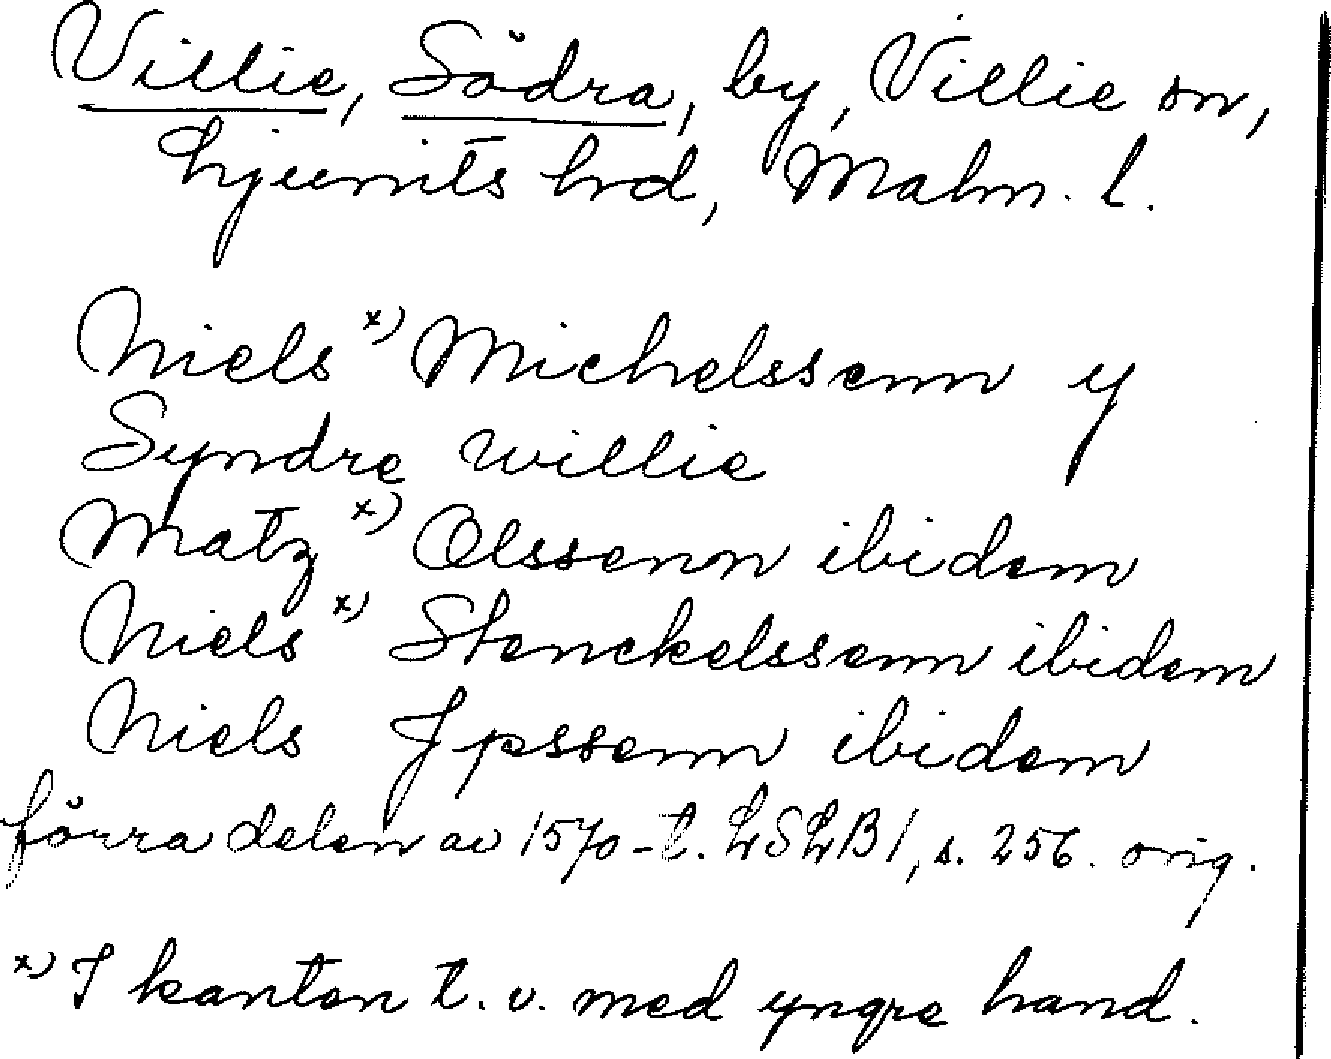 Villie, Södra, by, Villie sn,
Ljunits hrd, Malm. l.
Niels x) Michelssenn y
Syndre willie
Matz x) Olssenn ibidem
Niels x) Stenckelssenn ibidem
Niels Jpssenn ibidem
förra delen av 1570-t. LSLB1, s. 256. orig.
x) I kanten t.v. med yngre hand.